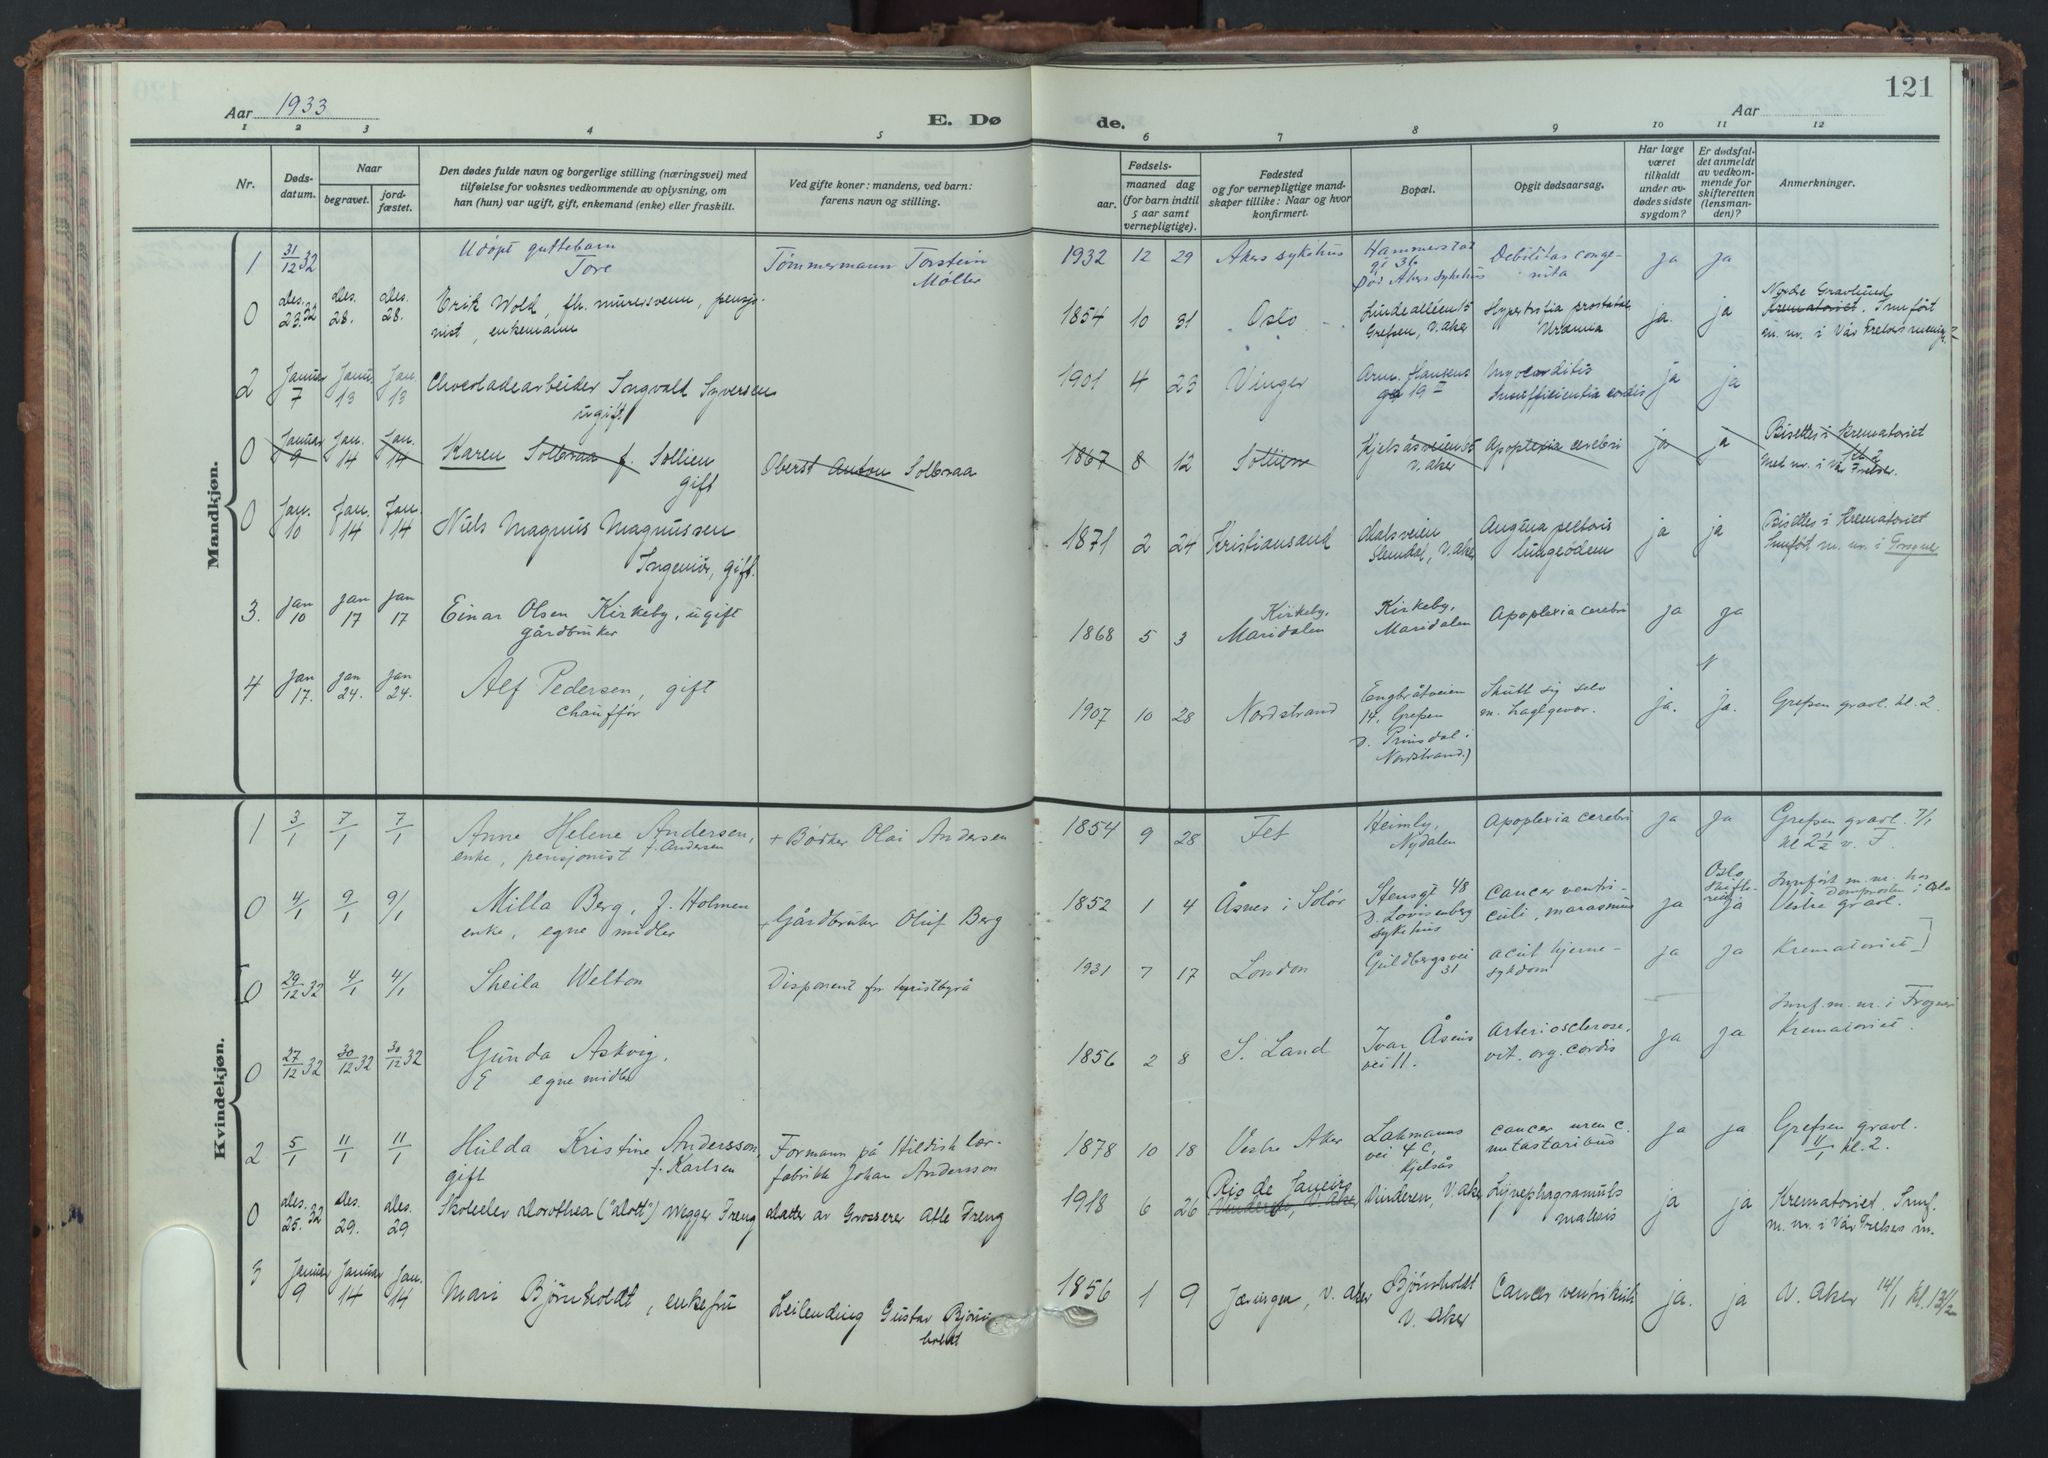 121
Aar 1933
E. Dø
de.
Aar
1 2 3 4 5 6 7 8 9 10 11 12
Nr.
Døds-
datum.
Naar
begravet.
jord-
fæstet.
Den dødes fulde navn og borgerlige stilling (næringsvei) med
tilføielse for voksnes vedkommende av oplysning, om
han (hun) var ugift, gift, enkemand (enke) eller fraskilt.
Ved gifte koner: mandens, ved barn:
farens navn og stilling.
Fødsels-
aar.
maaned
dag
(for barn indtil
5 aar samt
vernepligtige).
Fødested
og for vernepligtige mand-
skaper tillike: Naar og hvor
konfirmert.
Bopæl.
Opgit dødsaarsag.
Har læge
været
tilkaldt
under av-
dødes sidste
sygdom?
Er dødsfal-
det anmeldt
av vedkom-
mende for
skifteretten
(lensman-
den)?
Anmerkninger.
Mandkjøn.
1 31/12 32 Udöpt guttebarn Tømmermann Torstein 1932 12 29 Akers sykehus Hammerstad Debilitas conge- ja ja
Tore Møller gt 36 nita
Død Akers sykehus
0 Des. 23. 32 Des. 28. Des. 28. Erik Wold, fh. murersvenn, pensjo- 1854 10 31 Oslo Lindealléen 15 Hypertrofia prostatae ja. ja Nordre Gravlund
nist, enkemann Grefsen, V. Aker Uræmia Krematoriet. Innført
m. nr. i Vår Frelsers menigh.
2 Januar 7 Janu. 13 Jan 13 Chocoladearbeider Ingvald Syversen 1901 4 23 Vinger Arn. Hansens Myocarditis ja ja
ugift gt 19 II Insufficientia cordis
0 Januar 9 Jan. 14 Jan. 14 Karen Solbraa f. Sollien Oberst Anton Solbraa 1867 8 12 Sollien Kjelsåsveien 15 Apoplexia cerebri ja ja Bisettes i Krematoriet
gift V. Aker kl 2
Med nr. i Vår Frelser.
0 Jan. 10 Jan. 14 Jan. 14 Niels Magnus Magnussen 1871 2 24 Kristiansand Dalsveien Angina pectoris ja ja Bisettes i Krematoriet
Ingeniør, gift. Slemdal, V. Aker lungeødem Innført m. nr. i Frogner
3. Jan 10 Jan 17 Jan 17 Einar Olsen Kirkeby, ugift 1868 5 3 Kirkeby, Kirkeby, Apoplexia cerebri ja ja
gårdbruker Maridalen Maridalen
4 Jan 17. Jan 24. Jan 24. Alf Pedersen, gift 1907 10 28 Nordstrand Engbråtveien Skutt sig selv ja. ja. Grefsen gravl. kl. 2.
chauffør 14, Grefsen m. haglgevær.
D. Prinsdal i
Nordstrand.)
Kvindekjøn.
1 3/1 7/1 7/1 Anne Helene Andersen, + Bødker Olai Andersen 1854 9 28 Fet Heimly, Apoplexia cerebri ja ja Grefsen gravl. 7/1
enke, pensjonist f. Andersen Nydalen kl 2 1/2 v. F.
0 4/1 9/1 9/1 Milla Berg, f. Holmen + Gårdbruker Oluf Berg 1852 1 4 Åsnes i Solør Stensgt 48 Cancer ventri- ja Oslo skifte- ja Innført m. nr. hos
enke, egne midler D. Lovisenberg culi, marasmus Domprosten i Oslo
sykehus Vestre gravl.
0 29/12 32 4/1 4/1 Sheila Welton Disponent for turistbyrå 1931 7 17 London Guldbergsvei acut hjerne- ja ja Krematoriet
31 sykdom
0 27/12 32 30/12 32 30/12 32 Gunda Askvig. 1856 2 8 S. Land Ivar Åsens Arteriosclerose, ja ja Innf. m. nr. i Frogner
E egne midler vei 11. vit. org. cordis Krematoriet.
2 5/1 11/1 11/1 Hulda Kristine Andersson, Formann på Hildisk lær- 1878 10 18 Vestre Aker Lakmanns cancer uren c. ja ja Grefsen gravl.
gift f. Karlsen fabrikk Johan Andersson vei 4 C, mutastaribus 11/1 kl. 2.
Kjelsås
0 Des. 25. 32 Des. 29. Des. 29 Skoleelev Dorothea ("Dott") Wegger Freng Datter av Grosserer Atle Freng 1918 6 26 Rio de Janeiro Vinderen, V. Aker Lymphogranulo- ja ja Krematoriet. Innf.
Vinderen, V. Aker matosis m. nr. i Vår Frelsers m.
3 Januar 9 Januar 14 Jan. 14 Mari Bjørnholdt, enkefru Leilending Gustav Bjørn- 1856 1 9 Jæringen, V. Aker Bjørnholdt Cancer ventrikuli ja. ja V. Aker 14/1 kl. 13 1/2
holdt V. Aker